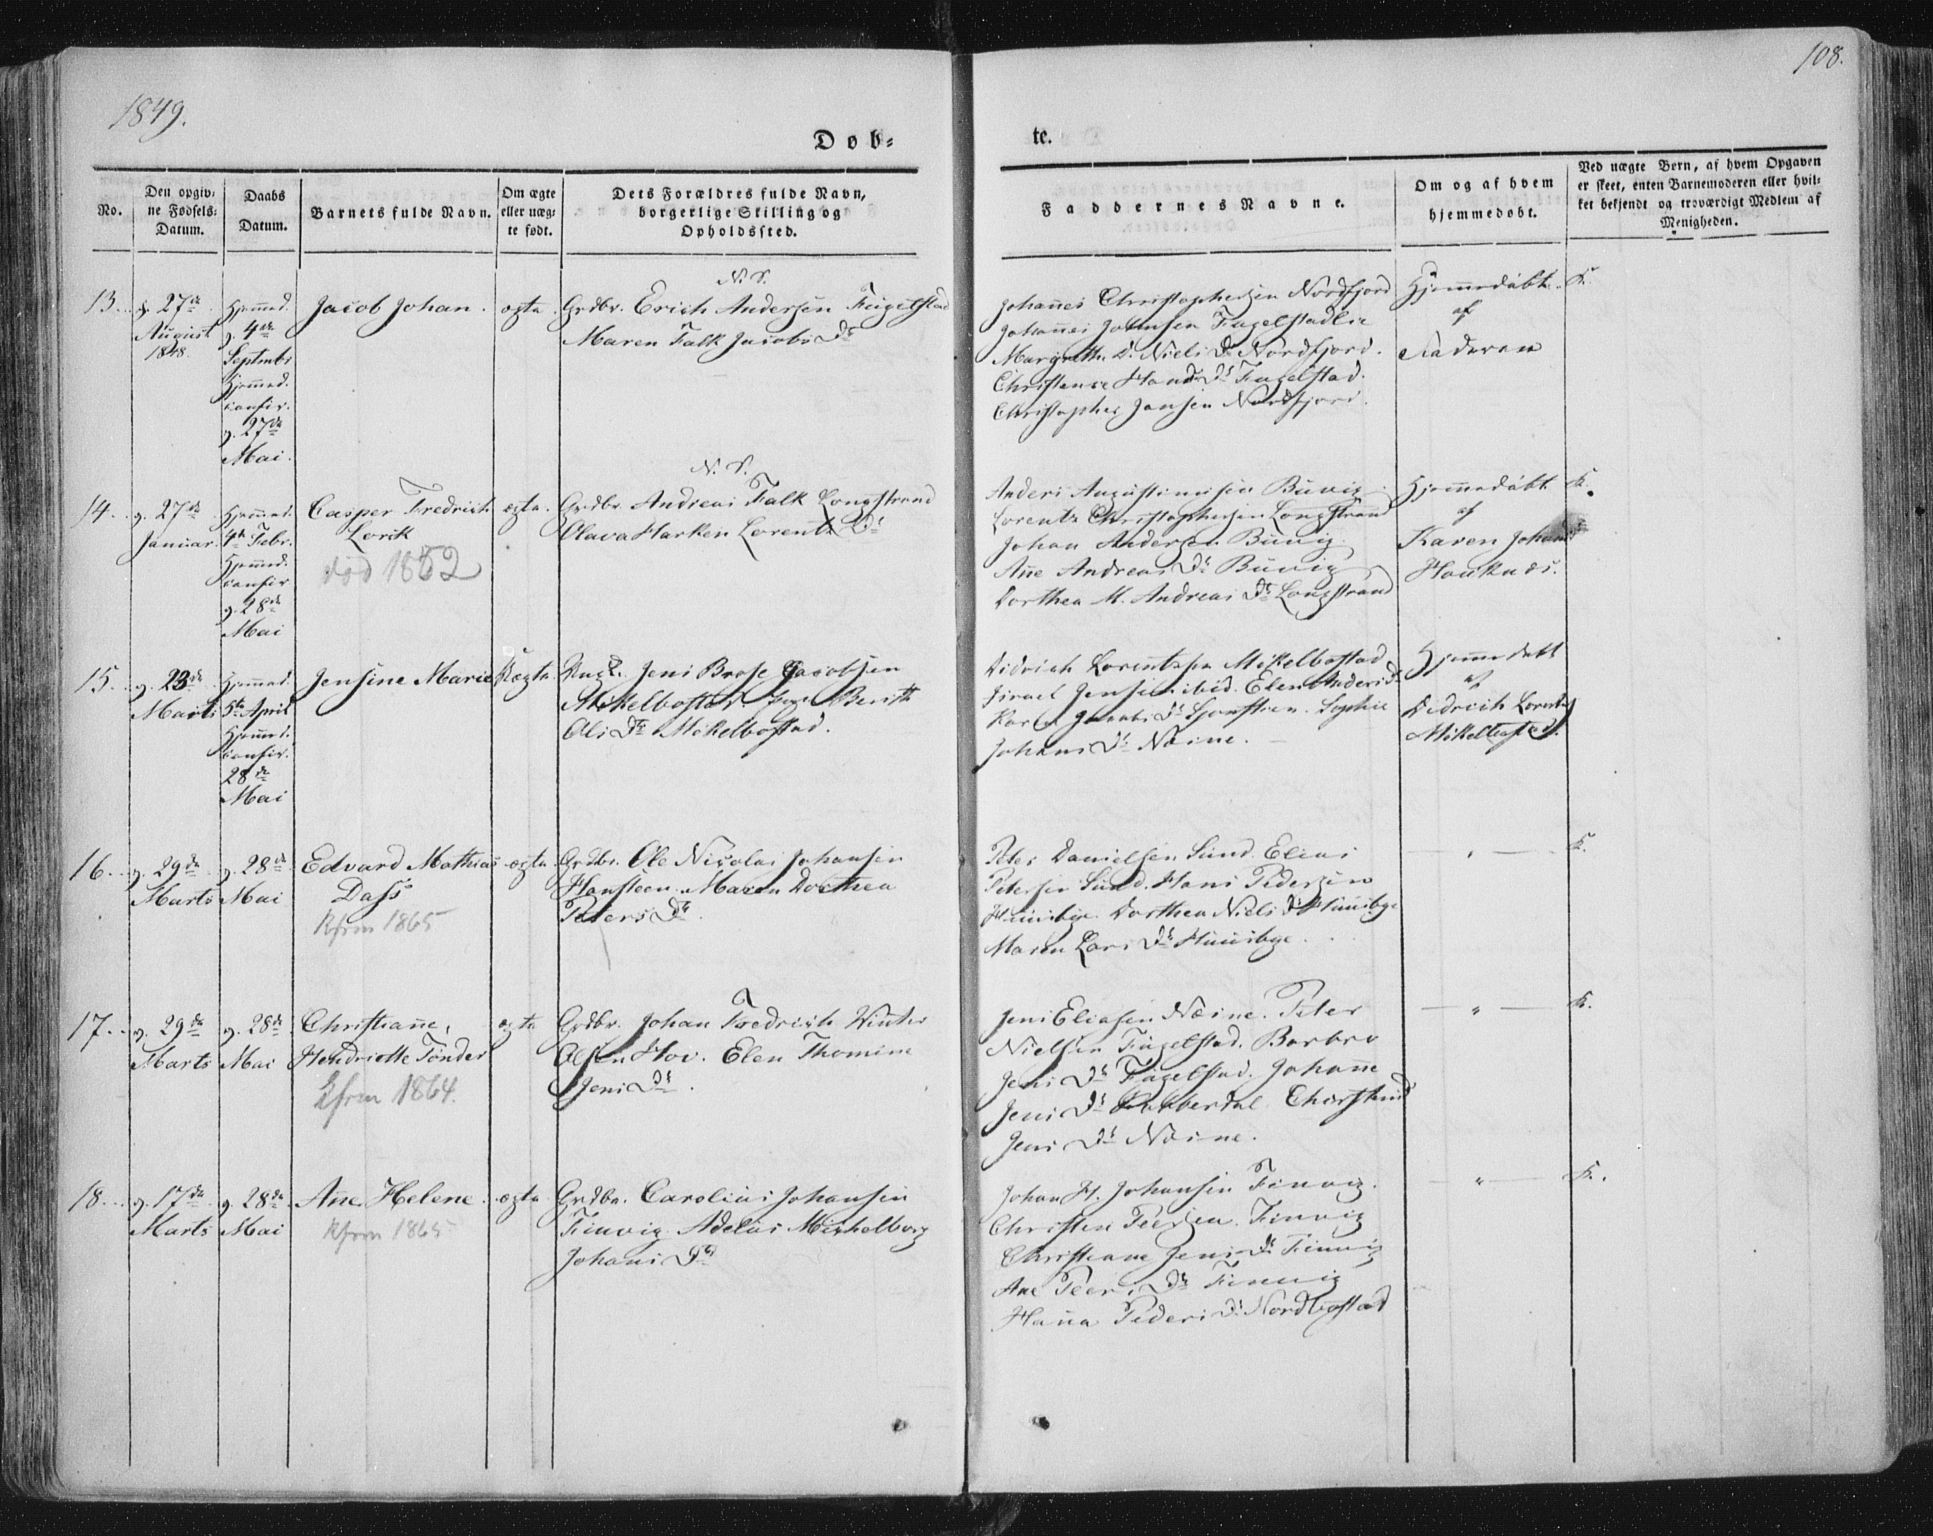 1849.
108.
Dob-
te.
No.
Den opgiv-
ne Fødsels-
Datum.
Daabs
Datum.
Barnets fulde Navn.
Om ægte
eller næg-
te født.
Dets Forældres fulde Navn,
borgerlige Stilling og
Opholdssted.
Faddernes Navne.
Om og af hvem
hjemmedøbt.
Ved nægte Børn, af hvem Opgaven
er skeet, enten Barnemoderen eller hvil-
ket bekjendt og troværdigt Medlem af
Menigheden.
13.
27de
August
1848.
Hjemmed.
4de
Septmbr
Hjemmed.
confir.
27de
Mai.
Jacob Johan.
ægte
N. S.
Grdbr. Erich Andersen Fugelstad
Maren Falk Jacobs Dr
Johanes Christophersen Nordfjord
Johanes Johnsen Fagelstadlie
Margreth. D. Niels Dr Nordfjord.
Christense Hans Dr Fagelstad.
Christopher Jansen Nordfjord.
Hjemmedøbt
af
Faderen
K.
14.
27de
Januar.
Hjemmed.
4de Febr.
Hjemmed.
confir
28de
Mai
Casper Fredrich
Lorik
død 1852
ægte.
N. S.
Grdbr. Andreas Falk Longstrand
Olava Harken Lorents Dr
Anders Augustinusen Buvig
Lorents Christophersen Longstrand
Johan Andersen Buvig.
Ane Andreas Dr Buvig
Dorthea M. Andreas Dr Longstrand
Hjemmedøbt
af
Karen Johans
Hauknæs.
K.
15.
23de
Marts
Hjemmed.
5te April
Hjemmed.
confir.
28de
Mai
Jensine Marie
Uægte
Jens Brose Jacobsen
Mikelbostad. Berith
Ols Dr Mikelbostad.
Didrich Lorentzsen Mikelbostad
Israel Jensen ibid. Elen Anders Dr
Jacobs Dr Sophie
Johans Dr Næsne.
Hjemmedøbt
af
Didrich Lorents
Mikelbostad.
16.
29de
Marts
28de
Mai
Edvard Mathias
Dass
Kfrm 1865
ægte
Grdbr. Ole Nicolai Johansen
Hansteen. Maren Dorthea
Peders Dr.
Peter Danielsen Sund. Elias
Petersen Sund. Hans Pedersen
Huusbye. Dorthea Niels Dr Huusbye
Maren Lars Dr Huusbye.
— " —
K.
17.
29de
Marts
28de
Mai
Christiane,
Hendriette Tønder
Kfrm 1864.
ægte
Grdbr. Johan Fredrich Winter
Olsen Hov. Elen Thomine
Jens Dr.
Jens Eliasen Næsne. Peter
Nielsen Fagelstad. Barbro
Jens Dr Fagelstad. Johanne
Jens Dr
Jens Dr Næsne.
— " —
K.
18.
17de
Marts
28de
Mai
Ane Helene.
Kfrm 1865
ægte
Grdbr. Carolius Johansen
Finvig. Adelus Mechelborg
Johans Dr
Johan H. Johansen Finvig.
Christen Peersen. Finvig
Christiane Jens Dr Finvig
Ane Peers Dr Finvig
Hana Peders Dr Nordbostad
— " —
K.